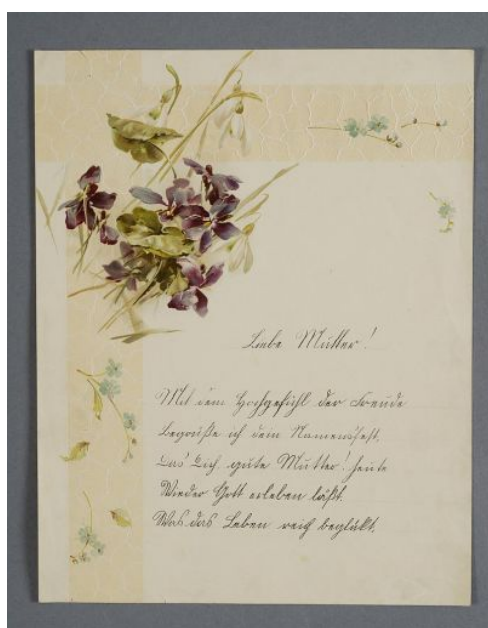 Liebe Mutter!
Mit dem Hochgefühl der Freude
Begrüße ich dein Namensfest,
Das Dich, gute Mutter! heute
Wieder Gott erleben läßt.
Was das Leben reich beglükt,